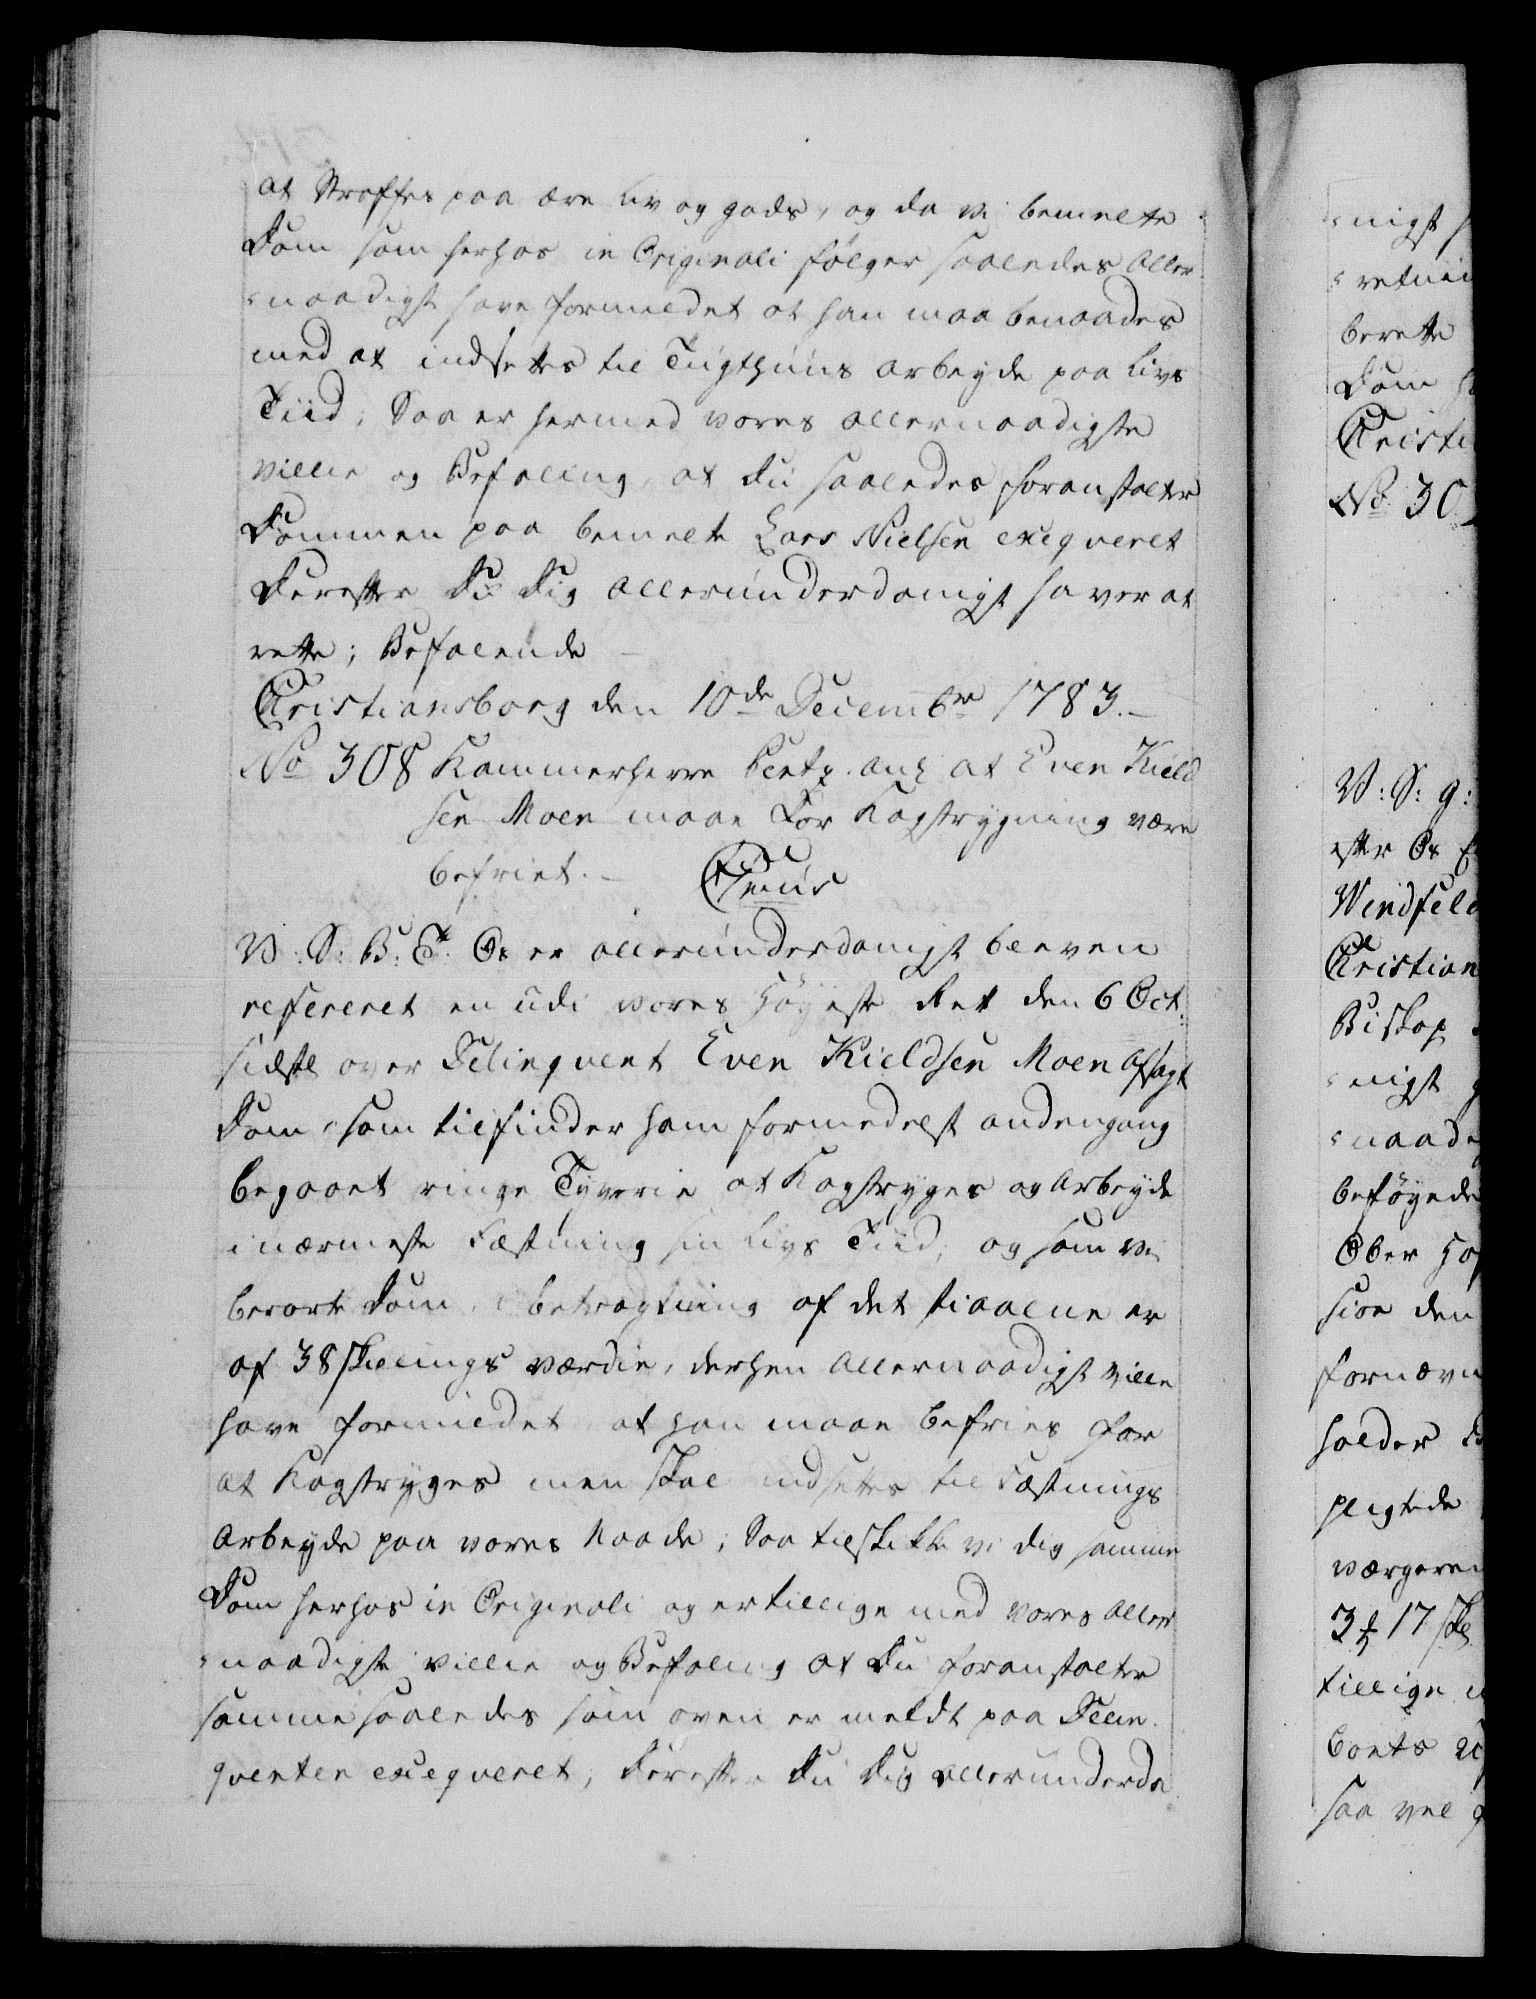 at Straffes paa ære Liv og gods, og da vi bemelte
Dom som herhos in Originali følger saaledes Aller
=naadigst have formildet at han maa benaades
med at indsettes til Tugthuus arbeyde paa Livs
Tiid; Saa er hermed vores allernaadigste
villie og Befaling, at du saaledes foranstalter
Dommen paa bemelte Lars Nielsen exeqveret
Derefter Du Dig allerunderdanigst haver at
rette; Befalende
Christiansborg den 10de Decembr 1783.
No 308 Kammerherre Bentz. ang at Even Kield
sen Moen maae for Kagstrygning være
befriet.
V: S: B: T. Os er allerunderdanigst bleven
refereret en udi vores Høyeste Ret den 6 Oct.
sidstl over Delinqvent Even Kieldsen Moen afsagt
Dom, som tilfinder ham formedelst andengang
begaaet ringe Tyverie at Kagstryges og Arbeyde
i nærmeste Fæstning sin Livs Tiid, og som vi
berørte Dom, i betragtning af det stiaalne er
af 38 skillings værdie, derhen allernaadigst ville
have formildet, at han maae befries for
at Kagstryges men skal indsettes til Fæstnings
Arbeyde paa vores Naade; Saa tilskikke vi dig samme
Dom herhos in Originali og er tillige med vores Aller
=naadigste villie og Befaling at Du foranstalter
samme saaledes som oven er meldt paa Delin
qventen exeqveret, Derefter Du Dig allerunderda
=nigst
berette
Dom
Christi
No 30
V: S: g:
efter Os
Windfeld
Christian
Biskop
=nigst
=naade
beføyede
Ober Hof
sior den
fornævn
holder
pligtede
værgeren
3 17 sk
tillige
saa vel